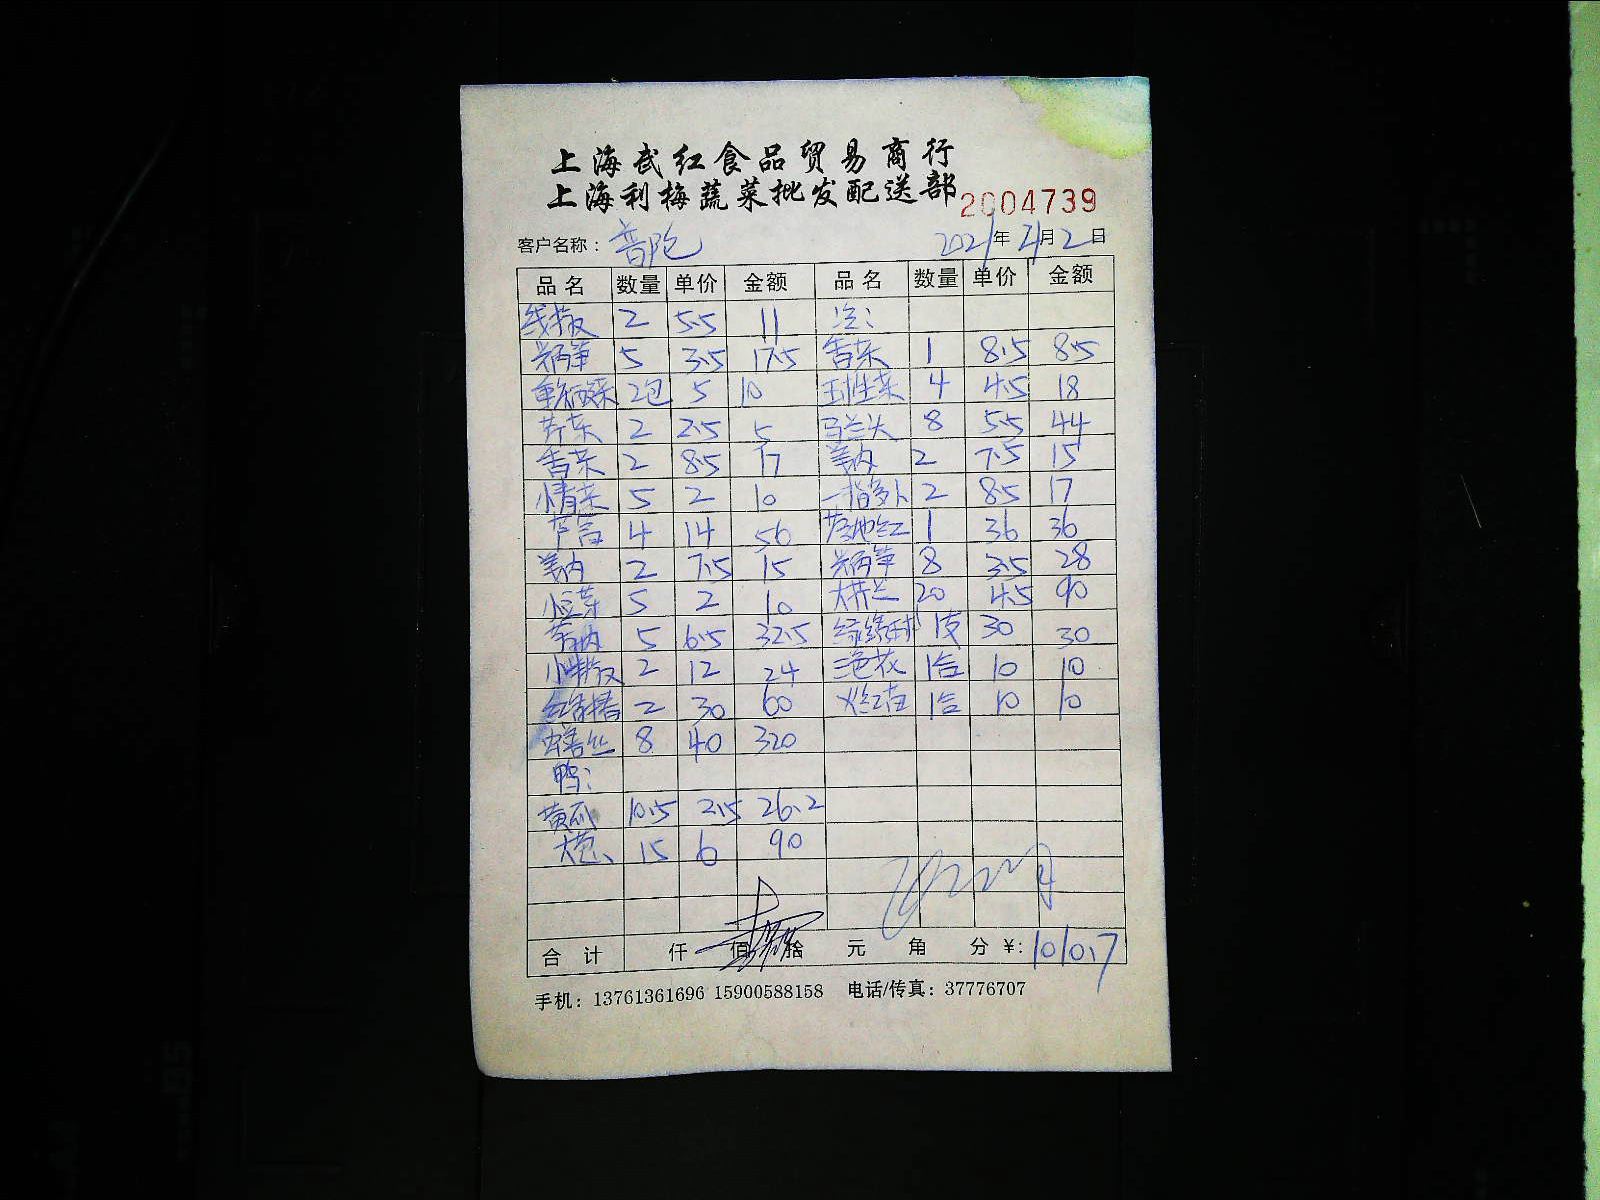 上海武红食品贸易商行
上海利梅蔬菜批发配送部 2004739
客户名称：普陀 2021年 月2日
品名 数量 单价 金额 品名 数量 单价 金额
线椒 2 5.5 11
5 3.5 17.5 香菜 1 8.5 8.5
2包 5 10 生菜 4 4.5 18
芹菜 2 2.5 5 马兰头 8 5.5 44
香菜 2 8.5 17 2 7.5 15
小青菜 5 2 10 2 8.5 17
芦笋 4 14 56 1 36 36
2 7.5 15 8 3.5 28
小豆芽 5 2 10 大芥兰 20 4.5 90
5 6.5 32.5 1支 30 30
小米椒 2 12 24 三色花 1合 10 10
2 30 60 1合 10 10
鳝丝 8 40 320
鸭：
黄瓜 10.5 2.5 26.2
大葱 15 6 90
合计 仟 佰 拾 元 角 分 ¥：1010.7
手机：13761361696 15900588158 电话/传真：37776707